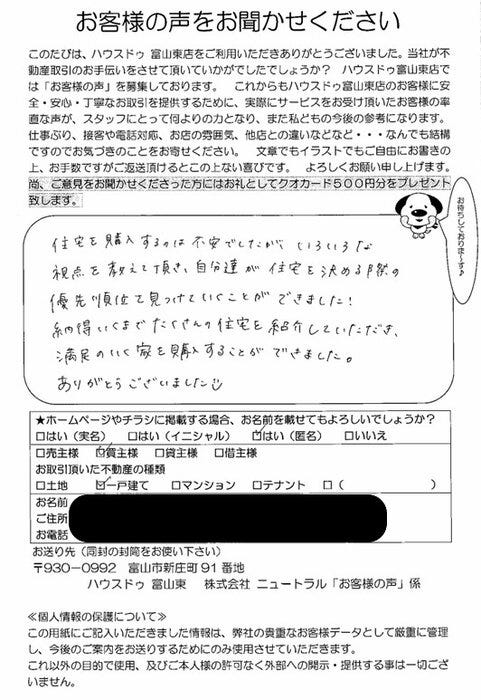 お客様の声をお聞かせください
このたびは、ハウスドゥ 富山東店をご利用いただきありがとうございました。当社が不
動産取引のお手伝いをさせて頂いていかがでしたでしょうか？　ハウスドゥ富山東店で
は「お客様の声」を募集しております。　これからもハウスドゥ富山東店のお客様に安
全・安心・丁寧なお取引を提供するために、実際にサービスをお受け頂いたお客様の率
直な声が、スタッフにとって何よりの力となり、また私どもの今後の参考になります。
仕事ぶり、接客や電話対応、お店の雰囲気、他店との違いなどなど・・・なんでも結構
ですのでお気づきのことをお寄せください。　文章でもイラストでもご自由にお書きの
上、お手数ですがご返送頂けるとこの上ない喜びです。　よろしくお願い申し上げます。
尚、ご意見をお聞かせくださった方にはお礼としてクオカード５００円分をプレゼント
致します。
お待ちしておりま～す♪
住宅を購入するのは不安でしたが、いろいろな
視点を教えて頂き、自分達が住宅を決める際の
優先順位で見つけていくことができました！
納得いくまでたくさんの住宅を紹介していただき、
満足のいく家を購入することができました。
ありがとうございました☺
★ホームページやチラシに掲載する場合、お名前を載せてもよろしいでしょうか？
□はい（実名）　□はい（イニシャル）　☑はい（匿名）　□いいえ
□売主様　☑買主様　□貸主様　□借主様
お取引頂いた不動産の種類
□土地　☑一戸建て　□マンション　□テナント　□（　　　　　　）
お名前
ご住所
お電話
お送り先（同封の封筒をお使い下さい）
〒930-0992　富山市新庄町91番地
ハウスドゥ 富山東　株式会社 ニュートラル「お客様の声」係
≪個人情報の保護について≫
この用紙にご記入いただきました情報は、弊社の貴重なお客様データとして厳重に管理
し、今後のご案内をお送りするためにのみ使用させていただきます。
これ以外の目的で使用、及びご本人様の許可なく外部への開示・提供する事は一切ござ
いません。